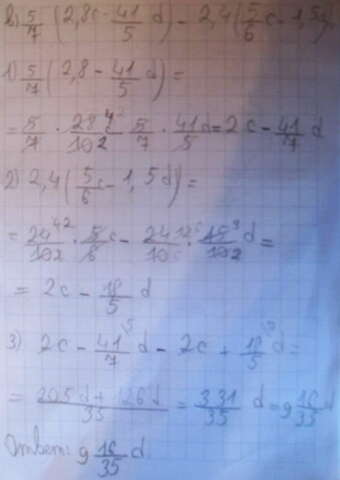 в) 5/7 (2,8c - 41/5 d) - 2,4 (5/6 c - 1,5d)
1) 5/7 (2,8 - 41/5 d) =
= 5/7 · 28/10 c - 5/7 · 41/5 d = 2c - 41/7 d
2) 2,4 (5/6 c - 1,5d) =
= 24/10 · 5/6 c - 24/10 · 15/10 d =
= 2c - 18/5 d
3) 2c - 41/7 d - 2c + 18/5 d =
= 205d + 126d/35 = 331/35 d = 9 16/35 d
Ответ: 9 16/35 d